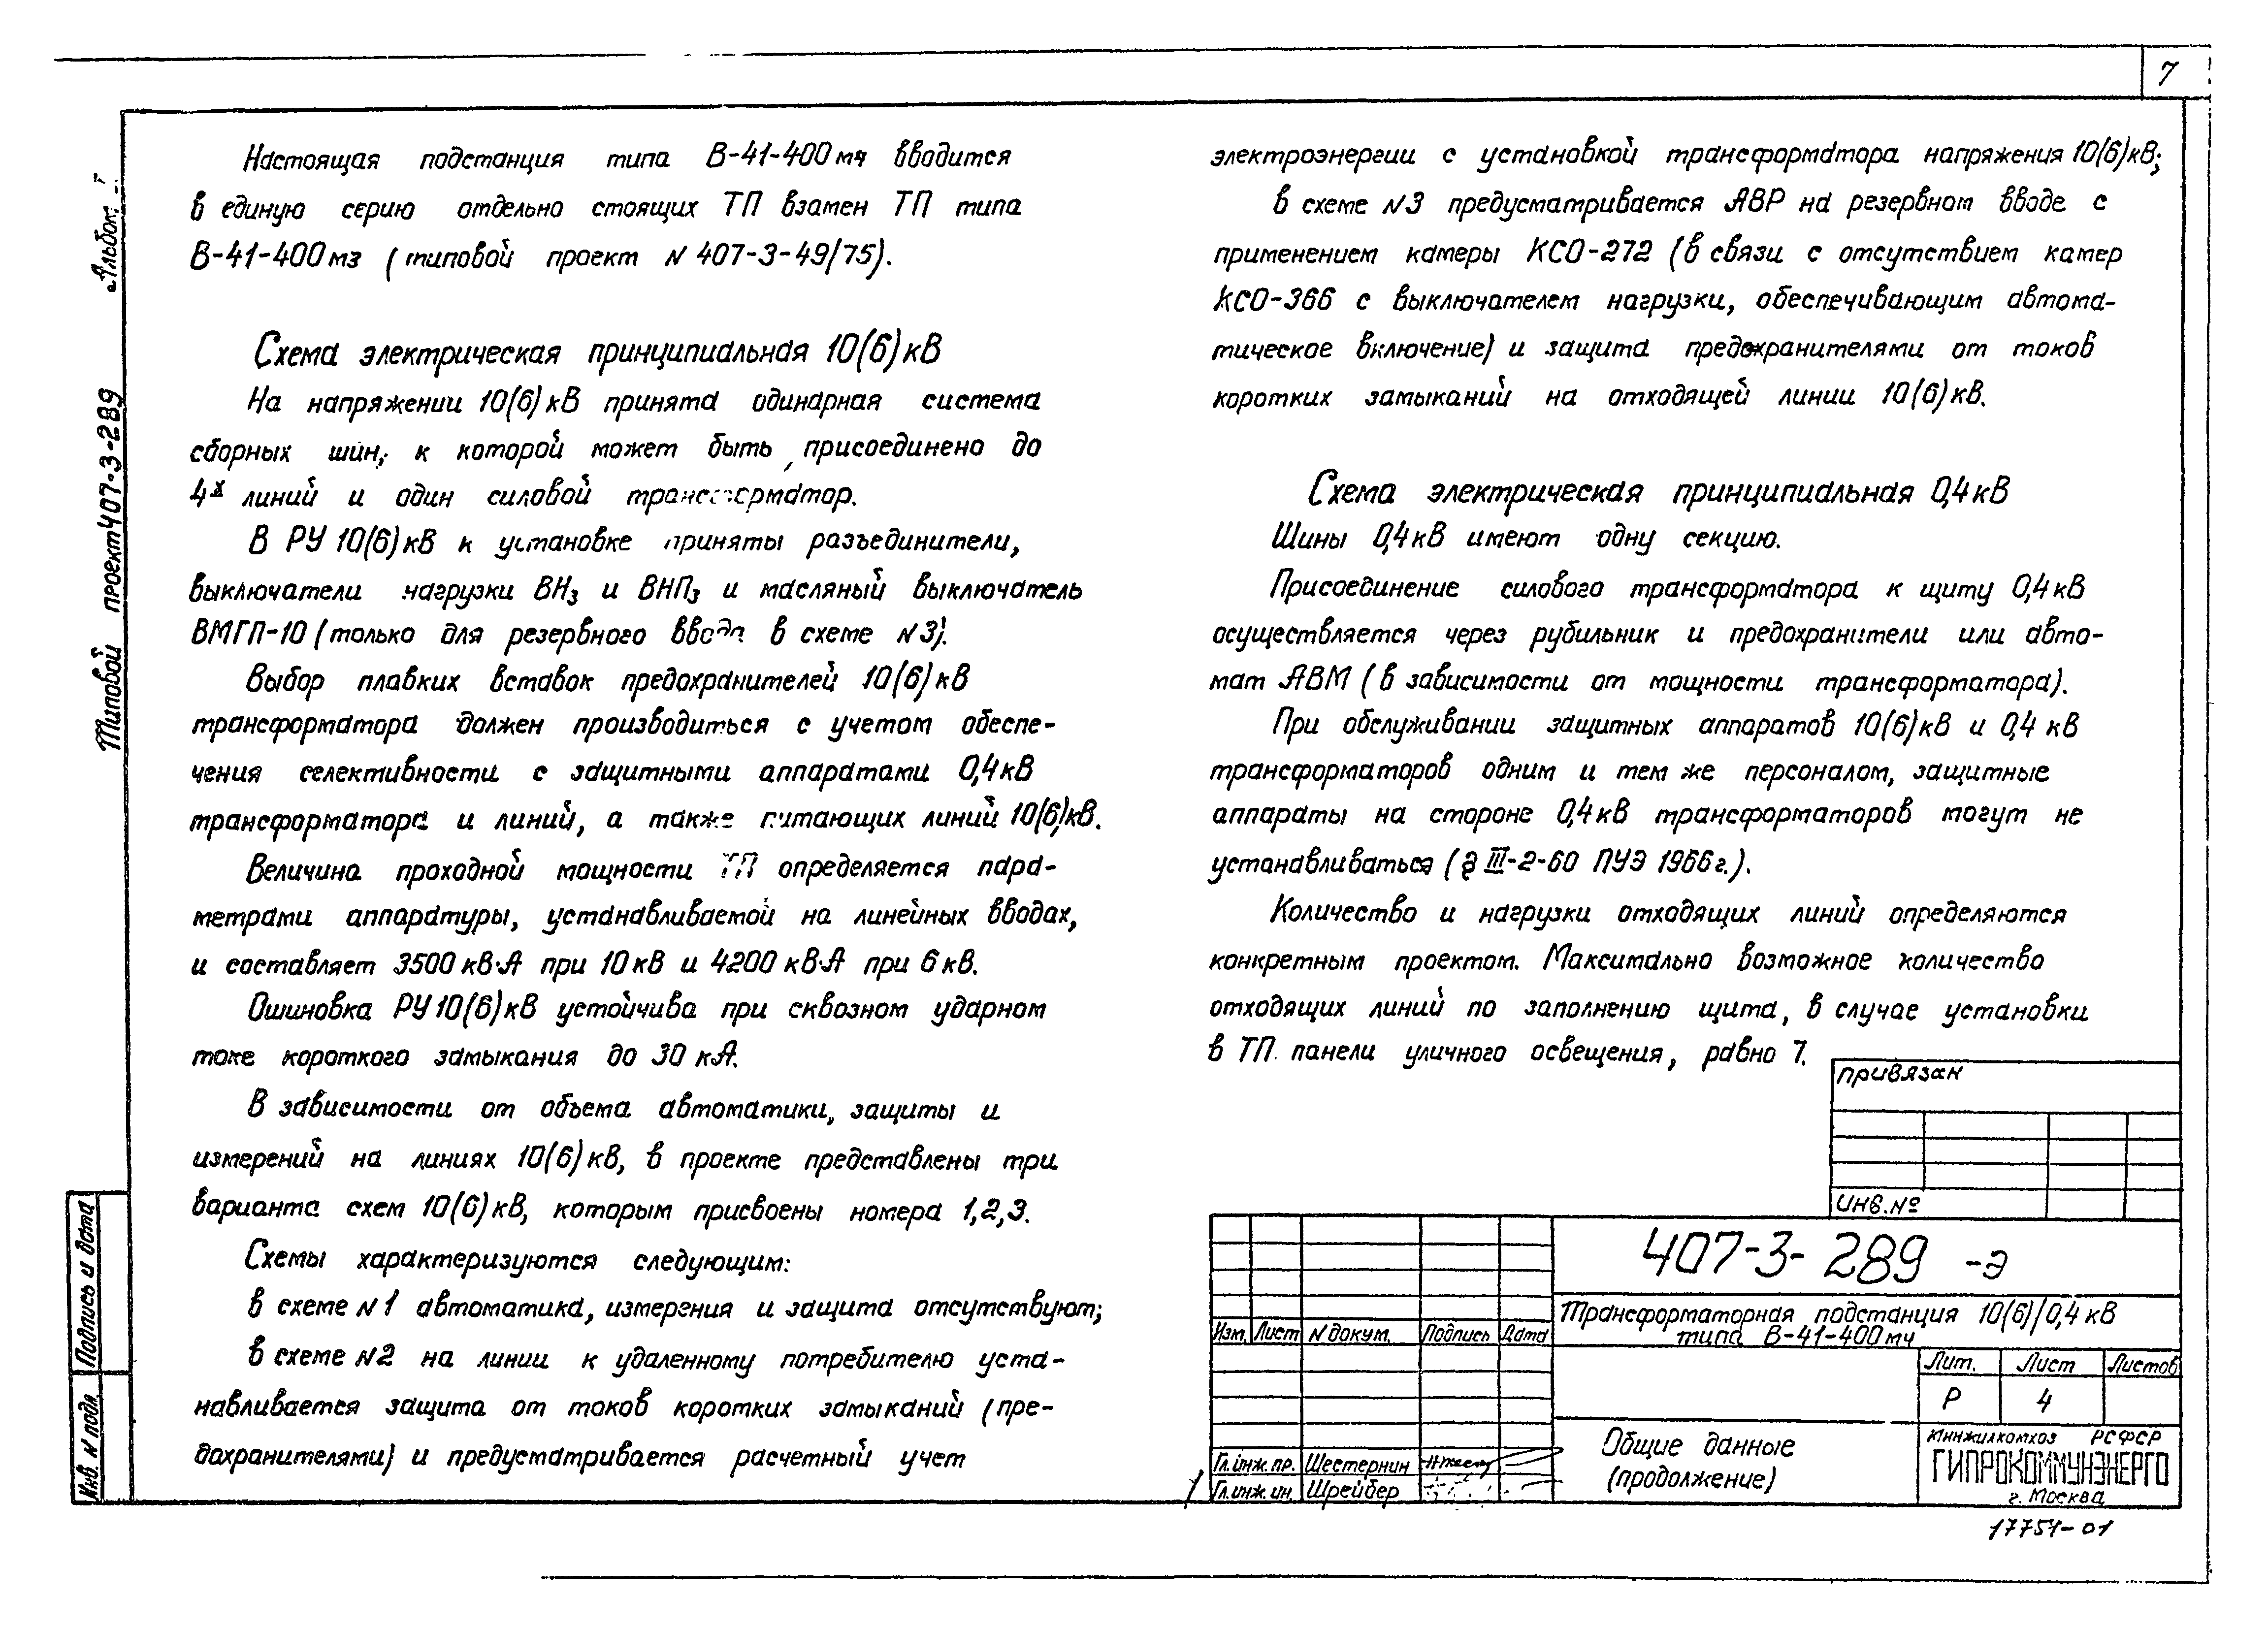 7
Альбом I
Типовой проект 407-3-289
Подпись и дата
Инв. N подл.
Настоящая подстанция типа В-41-400м4 вводится
в единую серию отдельно стоящих ТП взамен ТП типа
В-41-400м3 (типовой проект N 407-3-49/75).
Схема электрическая принципиальная 10(6)кВ
На напряжении 10(6)кВ принята одинарная система
сборных шин, к которой может быть присоединено до
4х линий и один силовой трансформатор.
В РУ 10(6)кВ к установке приняты разъединители,
выключатели нагрузки ВНз и ВНПз и масляный выключатель
ВМГП-10 (только для резервного ввода в схеме N3).
Выбор плавких вставок предохранителей 10(6)кВ
трансформатора должен производиться с учетом обеспе-
чения селективности с защитными аппаратами 0,4кВ
трансформатора и линий, а также питающих линий 10(6)кВ.
Величина проходной мощности ТП определяется пара-
метрами аппаратуры, устанавливаемой на линейных вводах,
и составляет 3500 кВ·А при 10кВ и 4200 кВ·А при 6кВ.
Ошиновка РУ 10(6)кВ устойчива при сквозном ударном
токе короткого замыкания до 30 кА.
В зависимости от объема автоматики, защиты и
измерений на линиях 10(6)кВ, в проекте представлены три
варианта схем 10(6)кВ, которым присвоены номера 1,2,3.
Схемы характеризуются следующим:
в схеме N1 автоматика, измерения и защита отсутствуют;
в схеме N2 на линии к удаленному потребителю уста-
навливается защита от токов коротких замыканий (пре-
дохранителями) и предусматривается расчетный учет
электроэнергии с установкой трансформатора напряжения 10(6)кВ;
в схеме N3 предусматривается АВР на резервном вводе с
применением камеры КСО-272 (в связи с отсутствием камер
КСО-366 с выключателем нагрузки, обеспечивающим автома-
тическое включение) и защита предохранителями от токов
коротких замыканий на отходящей линии 10(6)кВ.
Схема электрическая принципиальная 0,4кВ
Шины 0,4кВ имеют одну секцию.
Присоединение силового трансформатора к щиту 0,4кВ
осуществляется через рубильник и предохранители или авто-
мат АВМ (в зависимости от мощности трансформатора).
При обслуживании защитных аппаратов 10(6)кВ и 0,4 кВ
трансформаторов одним и тем же персоналом, защитные
аппараты на стороне 0,4кВ трансформаторов могут не
устанавливаться (§ III-2-60 ПУЭ 1966г.).
Количество и нагрузки отходящих линий определяются
конкретным проектом. Максимально возможное количество
отходящих линий по заполнению щита, в случае установки
в ТП панели уличного освещения, равно 7.
привязан
инв.№
407-3-289 -Э
Трансформаторная подстанция 10(6)/0,4кВ
типа В-41-400м4
Изм. Лист N докум. Подпись Дата
Лит. Лист Листов
Р 4
Общие данные
(продолжение)
Минжилкомхоз РСФСР
ГИПРОКОММУНЭНЕРГО
г. Москва
Гл.инж.пр. Шестернин
Гл.инж.ин. Шрейбер
17751-01